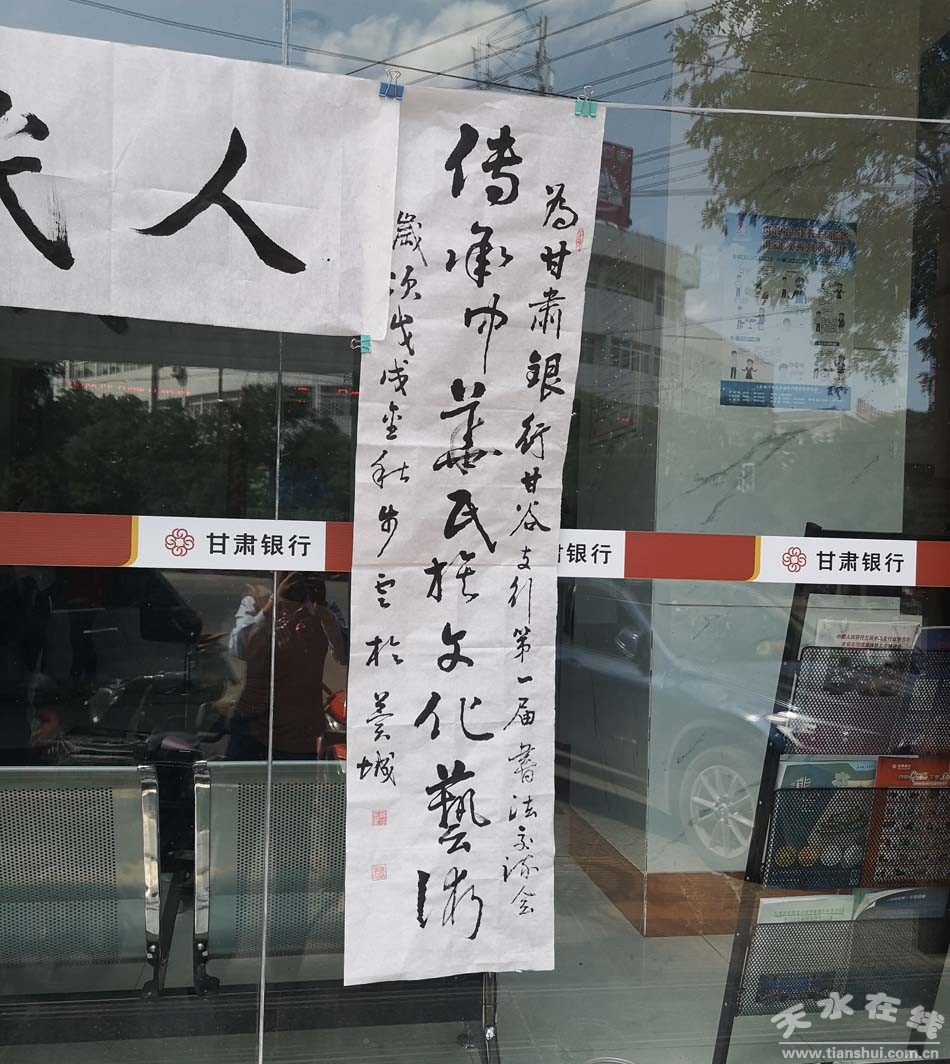 為甘肅銀行甘谷支行第一届書法交流会
傳承中華民族文化藝術
歲次戊戌金秋步云於冀城
人
甘肃银行
肃银行
甘肃银行
天水在线
www.tianshui.com.cn